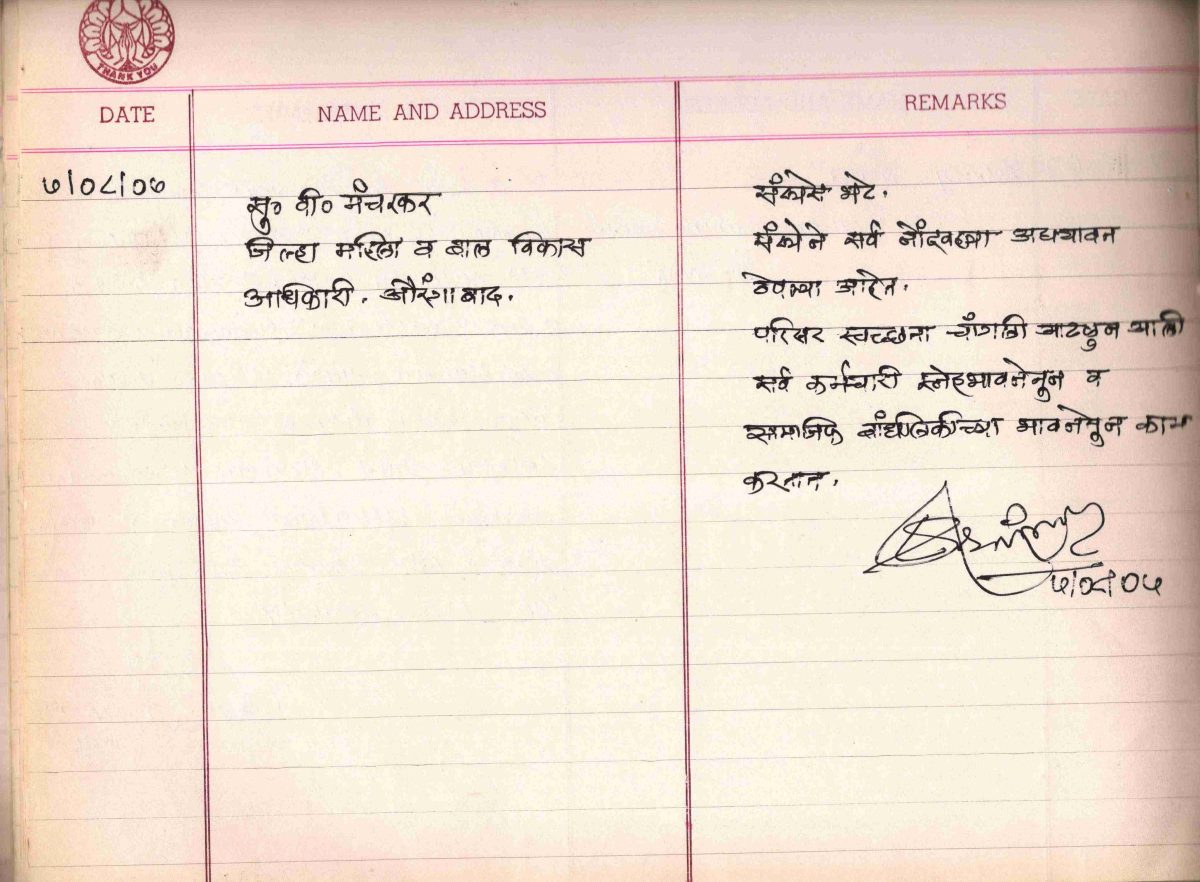 THANK YOU
DATE NAME AND ADDRESS REMARKS
७/०८/०७
सु० वी० मंचरकर
जिल्हा महिला व बाल विकास
अधिकारी. औरंगाबाद.
संस्थेस भेट.
संस्थेने सर्व नोंदवह्या अद्ययावत
ठेवल्या आहेत.
परिसर स्वच्छता चांगली आढळून आली
सर्व कर्मचारी स्नेहभावनेतून व
सामाजिक बांधिलकीच्या भावनेतून काम
करतात.